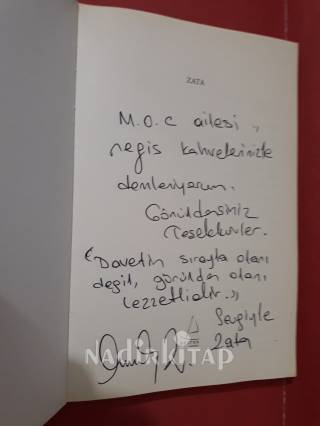 ZATA
M.O.C ailesi,,
nefis kahvelerinizle
demleniyorum.
Gönüldesiniz
Teşekkürler.
"Davetin sırayla olanı
değil, gönülden olanı
lezzetlidir.,,
Sevgiyle
Zata
NadirKitap